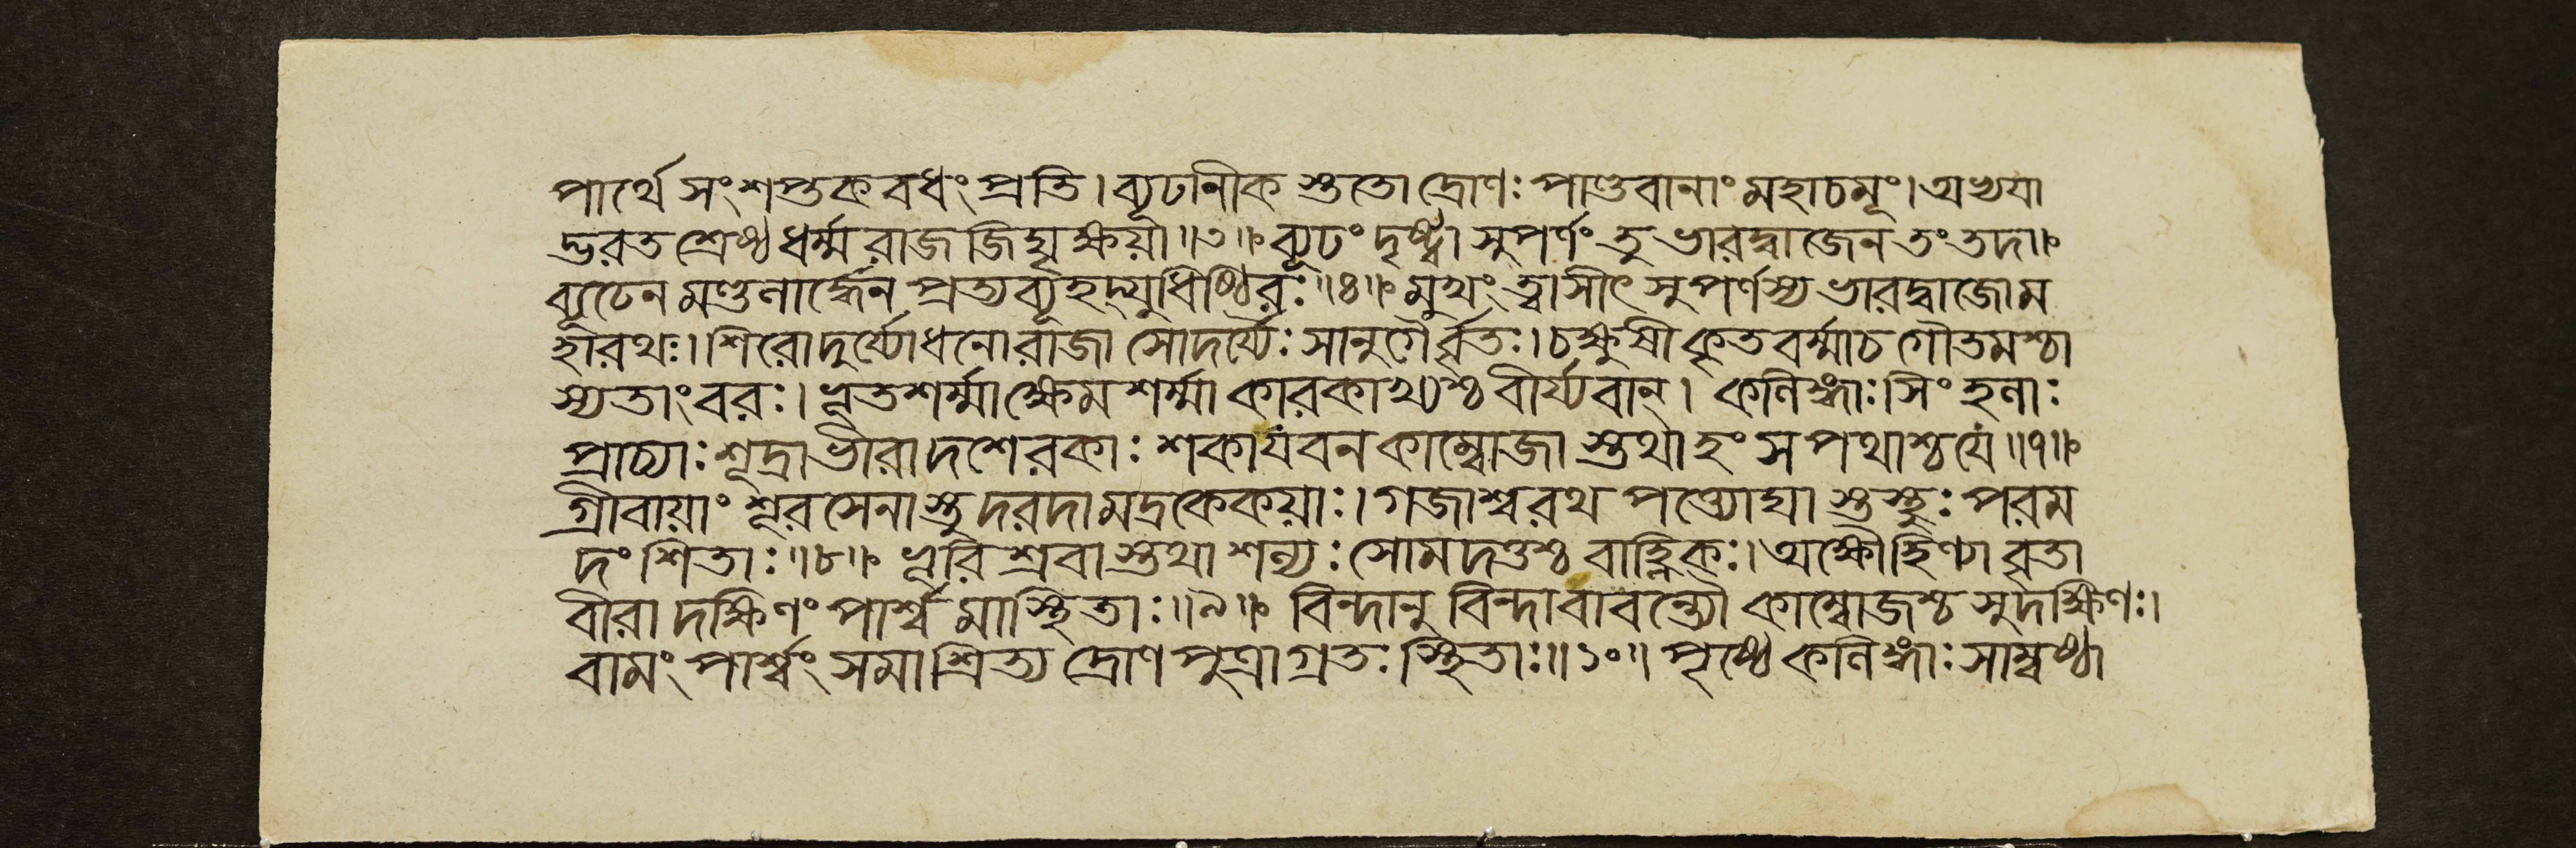 পার্থে সংশপ্তক বধং প্রতি। ব্যূঢানীক স্তুতো দ্রোণঃ পাণ্ডবানাং মহাচমূং। অভ্যযা
দ্ভরত শ্রেষ্ঠ ধর্ম্মরাজ জিঘৃক্ষয়া॥৩॥ ব্যূঢং দৃষ্ট্বা সুপর্ণং তু ভারদ্বাজেন তং তদা॥
ব্যূঢেন মণ্ডলার্দ্ধেন প্রত্যব্যূহদ্যুধিষ্ঠিরঃ॥৪॥ মুখং ত্বাসীৎ সুপর্ণস্য ভারদ্বাজো ম
হারথঃ। শিরো দুর্য্যোধনো রাজা সোদর্য্যৈঃ সানুগৈর্ব্বৃতঃ। চক্ষুষী কৃতবর্ম্মা চ গৌতমশ্চা
স্যতাং বরঃ। ভূতশর্ম্মা ক্ষেমশর্ম্মা কারকাখ্যশ্চ বীর্য্যবান্। কলিঙ্গাঃ সিংহলাঃ
প্রাচ্যাঃ শূদ্রাভীরা দশেরকাঃ শকা যবন কাম্বোজা স্তথা হংসপথাশ্চ যে॥৭॥
গ্রীবায়াং শূরসেনাস্তু দরদা মদ্রকেকয়াঃ। গজাশ্বরথ পত্ত্যোঘা স্তস্থুঃ পরম
দংশিতাঃ॥৮॥ ভূরিশ্রবা স্তথা শল্যঃ সোমদত্তশ্চ বাহ্লিকঃ। অক্ষৌহিণ্যা বৃতা
বীরা দক্ষিণং পার্শ্বমাস্থিতাঃ॥৯॥ বিন্দানুবিন্দাবাবন্ত্যৌ কাম্বোজশ্চ সুদক্ষিণঃ।
বামং পার্শ্বং সমাশ্রিত্য দ্রোণপুত্রাগ্রতঃ স্থিতাঃ॥১০॥ পৃষ্ঠে কলিঙ্গাঃ সাম্বষ্ঠা